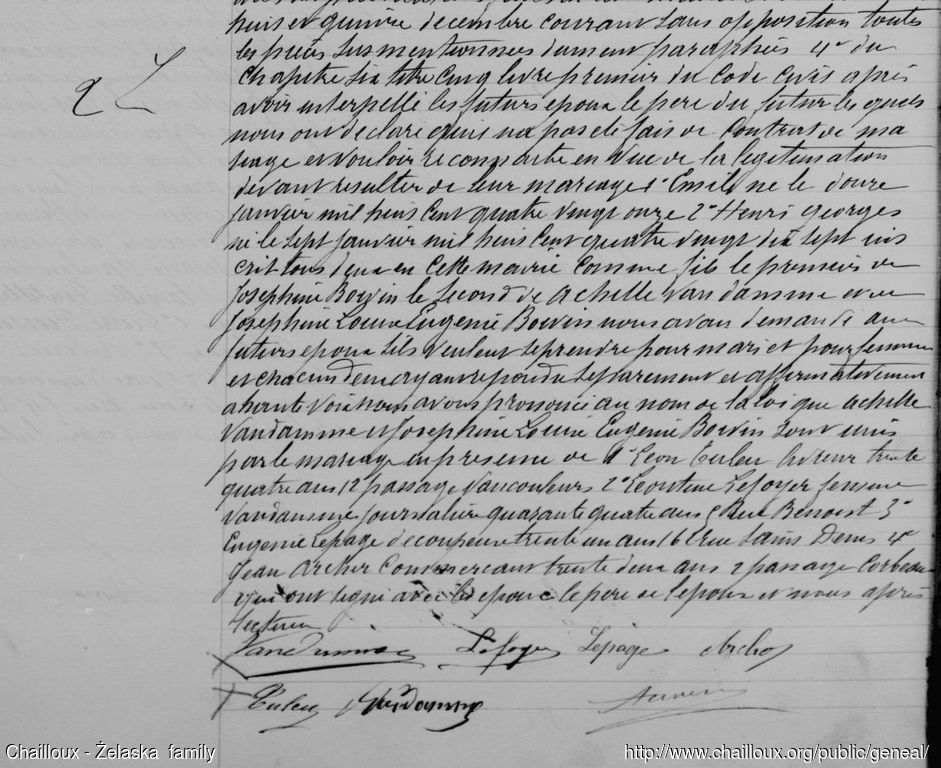 huit et quinze decembre courant sans opposition toutes
les pieces susmentionnees dument paraphées 4° du
chapitre six titre cinq livre premier du Code civil après
avoir interpellé les futurs epoux le pere du futur les quels
nous ont declaré qu'il n'a pas été fait de Contrat de ma
riage et vouloir reconnaitre en vue de la legitimation
devant resulter de leur mariage 1° Emile ne le douze
janvier mil huit cent quatre vingt onze 2° Henri Georges
né le sept janvier mil huit cent quatre vingt dix sept ins
crit tous deux en cette mairie comme fils le premier de
Josephine Boivin le second de Achille Vandamme et de
Josephine Louise Eugenie Boivin nous avons demandé aux
futurs epoux s'ils veulent se prendre pour mari et pour femme
et chacun d'eux ayant repondu separement et affirmativement
a haute voix nous avons prononcé au nom de la loi que Achille
Vandamme et Josephine Louise Eugenie Boivin sont unis
par le mariage en presence de 1° Leon trente
quatre ans 12 passage Vaucouleurs 2° Leontine Lefoyer femme
Vandamme journaliere quarante quatre ans 5 Rue Benoist 3°
Eugenie Lepage decoupeuse trente un ans 16 rue Saint Denis 4°
Jean Archer Commercant trente deux ans 2 passage Corbeau
qui ont signé avec les epoux le pere de l'epoux et nous après
lecture
Vandamme Lefoyer Lepage Archer
Vandamme
Chailloux - Żelaska family
http://www.chailloux.org/public/geneal/